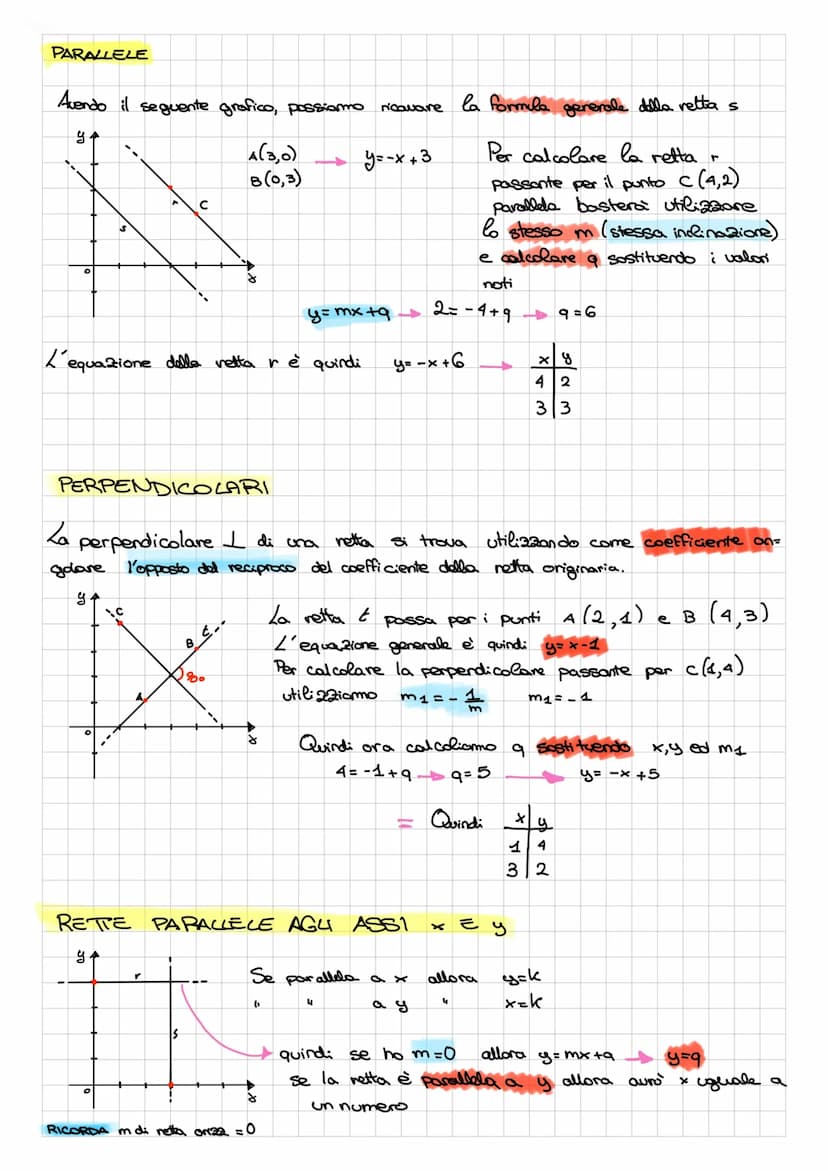 PARALLELE
Avendo il seguente grafico, possiamo ricavare la formula generale della retta s
y
A(3,0) → y=-x+3
B(0,3)
Per calcolare la retta r
passante per il punto C(4,2)
parallela basterà utilizzare
lo stesso m (stessa inclinazione)
e calcolare q sostituendo i valori
noti
r
C
s
0
x
y=mx+q → 2=-4+q → q=6
L'equazione della retta r è quindi y=-x+6 →
x y
4 2
3 3
PERPENDICOLARI
La perpendicolare ⊥ di una retta si trova utilizzando come coefficiente an=
golare l'opposto del reciproco del coefficiente della retta originaria.
y
C
B
t
A
90
0
x
La retta t passa per i punti A(2,1) e B (4,3)
L'equazione generale è quindi y=x-1
Per calcolare la perpendicolare passante per C(1,4)
utilizziamo m1=-1/m m1=-1
Quindi ora calcoliamo q sostituendo x,y ed m1
4=-1+q → q=5 → y=-x+5
= Quindi
x y
1 4
3 2
RETTE PARALLELE AGLI ASSI x E y
y
r
s
0
x
Se parallela a x allora y=k
" " a y " x=k
quindi se ho m=0 allora y=mx+q → y=q
se la retta è parallela a y allora avrò x uguale a
un numero
RICORDA m di retta orizz =0